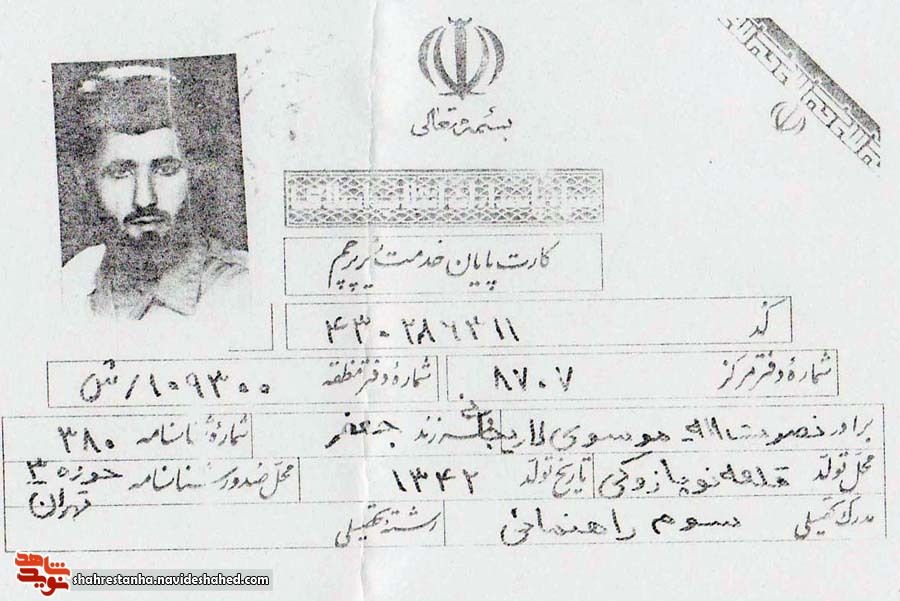 بسمه تعالی
کارت پایان خدمت زیر پرچم
کُد ۴۳۰۲۸۶۳۱۱
شمارهٔ دفتر مرکز ۸۷۰۷ شمارهٔ دفتر منطقه ۱۰۹۳۰۰/ش
برادر نصرت اله موسوی فرزند جعفر شمارهٔ شناسنامه ۳۸۰
محل تولّد قلعه نو پازوکی تاریخ تولّد ۱۳۴۲ محل صدور شناسنامه حوزه ۳ تهران
مدرک تحصیلی سوم راهنمائی رشته تحصیلی
شاهد
نوید
shahrestanha.navideshahed.com